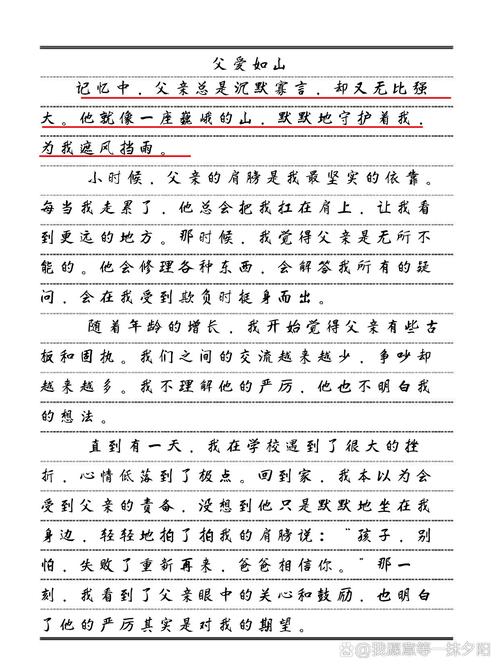 父爱如山
记忆中，父亲总是沉默寡言，却又无比强
大。他就像一座巍峨的山，默默地守护着我，
为我遮风挡雨。
小时候，父亲的肩膀是我最坚实的依靠。
每当我走累了，他总会把我扛在肩上，让我看
到更远的地方。那时候，我觉得父亲是无所不
能的。他会修理各种东西，会解答我所有的疑
问，会在我受到欺负时挺身而出。
随着年龄的增长，我开始觉得父亲有些古
板和固执。我们之间的交流越来越少，争吵却
越来越多。我不理解他的严厉，他也不明白我
的想法。
直到有一天，我在学校遇到了很大的挫
折，心情低落到了极点。回到家，我本以为会
受到父亲的责备，没想到他只是默默地坐在我
身边，轻轻地拍了拍我的肩膀说：“孩子，别
怕，失败了重新再来，爸爸相信你。”那一
刻，我看到了父亲眼中的关心和鼓励，也明白
了他的严厉其实是对我的期望。
@我愿意等一抹夕阳